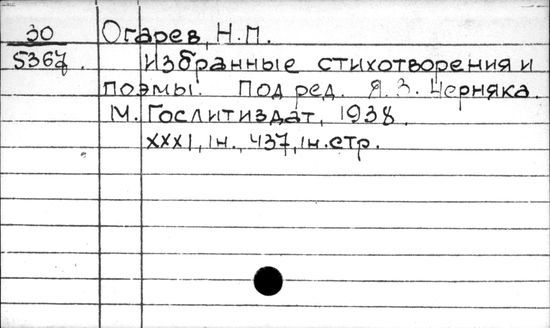 30 Огарев, Н.П.
5367. Избранные стихотворения и
поэмы. Под ред. Я. З. Черняка.
М. Гослитиздат, 1938.
XXXI, 1н., 437, 1н. стр.